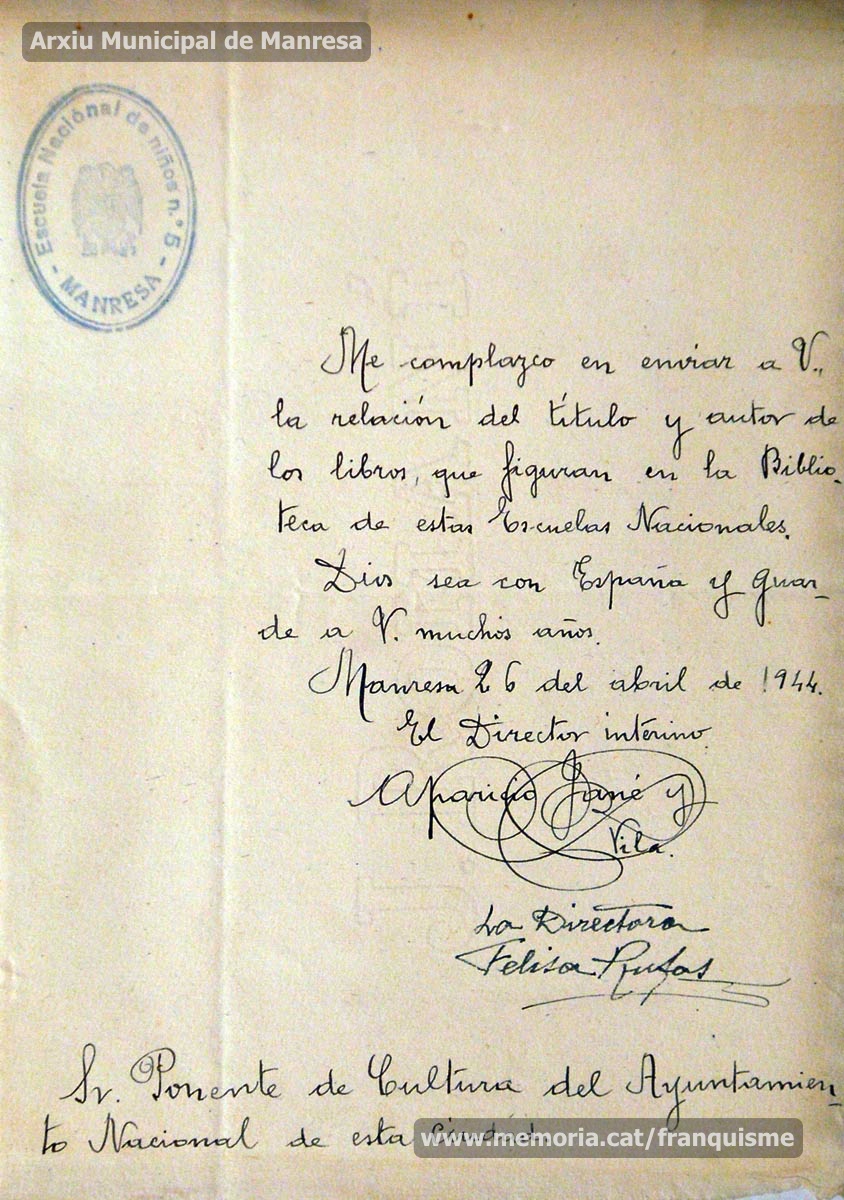 Arxiu Municipal de Manresa
Escuela Nacional de niños n.º 5
- MANRESA -
Me complazco en enviar a V.,
la relación del título y autor de
los libros, que figuran en la Biblio-
teca de estas Escuelas Nacionales.
Dios sea con España y guar-
de a V. muchos años.
Manresa 26 del abril de 1944.
El Director interino
Aparicio Jané y
Vila.
La Directora
Felisa Rufas
Sr. Ponente de Cultura del Ayuntamien-
to Nacional de esta Ciudad.
www.memoria.cat/franquisme